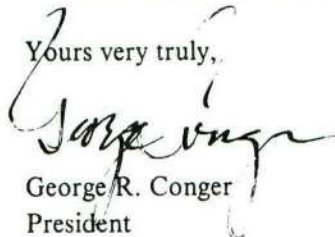 Yours very truly,
George Conger
George R. Conger
President